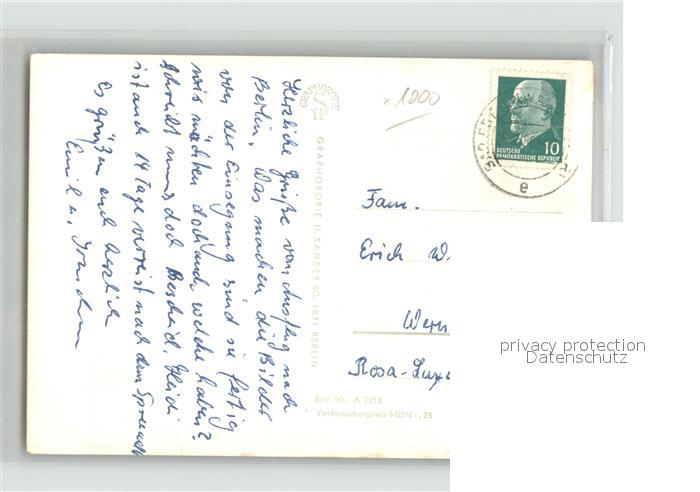 Herzliche Grüße vom Ausflug nach
Berlin. Was machen die Bilder
von der Einsegnung sind sie fertig
wir möchten doch auch welche haben?
Schreibt uns doch Bescheid. Heidi
ist auch 14 Tage verreist nach dem
Es grüßen euch herzlich
Emil u.
GRAPHOKOPIE
GRAPHOKOPIE H. SANDER KG, 1071 BERLIN
Best.-Nr. A 2213
Verbraucherpreis MDN -,25
1000
10
DEUTSCHE
DEMOKRATISCHE REPUBLIK
e
Fam.
Erich W.
Wern
Rosa-Luxe
privacy protection
Datenschutz